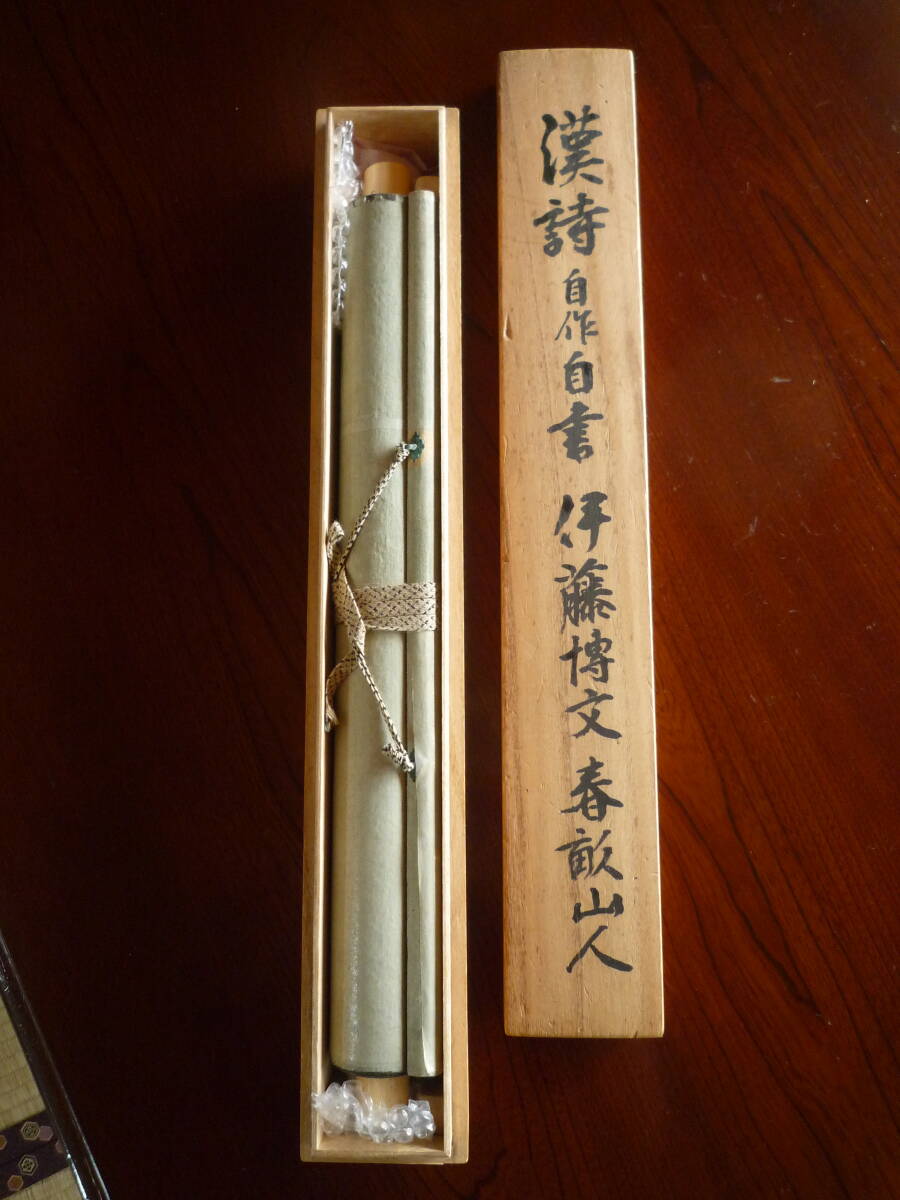 漢詩 自作自書 伊藤博文 春畝山人